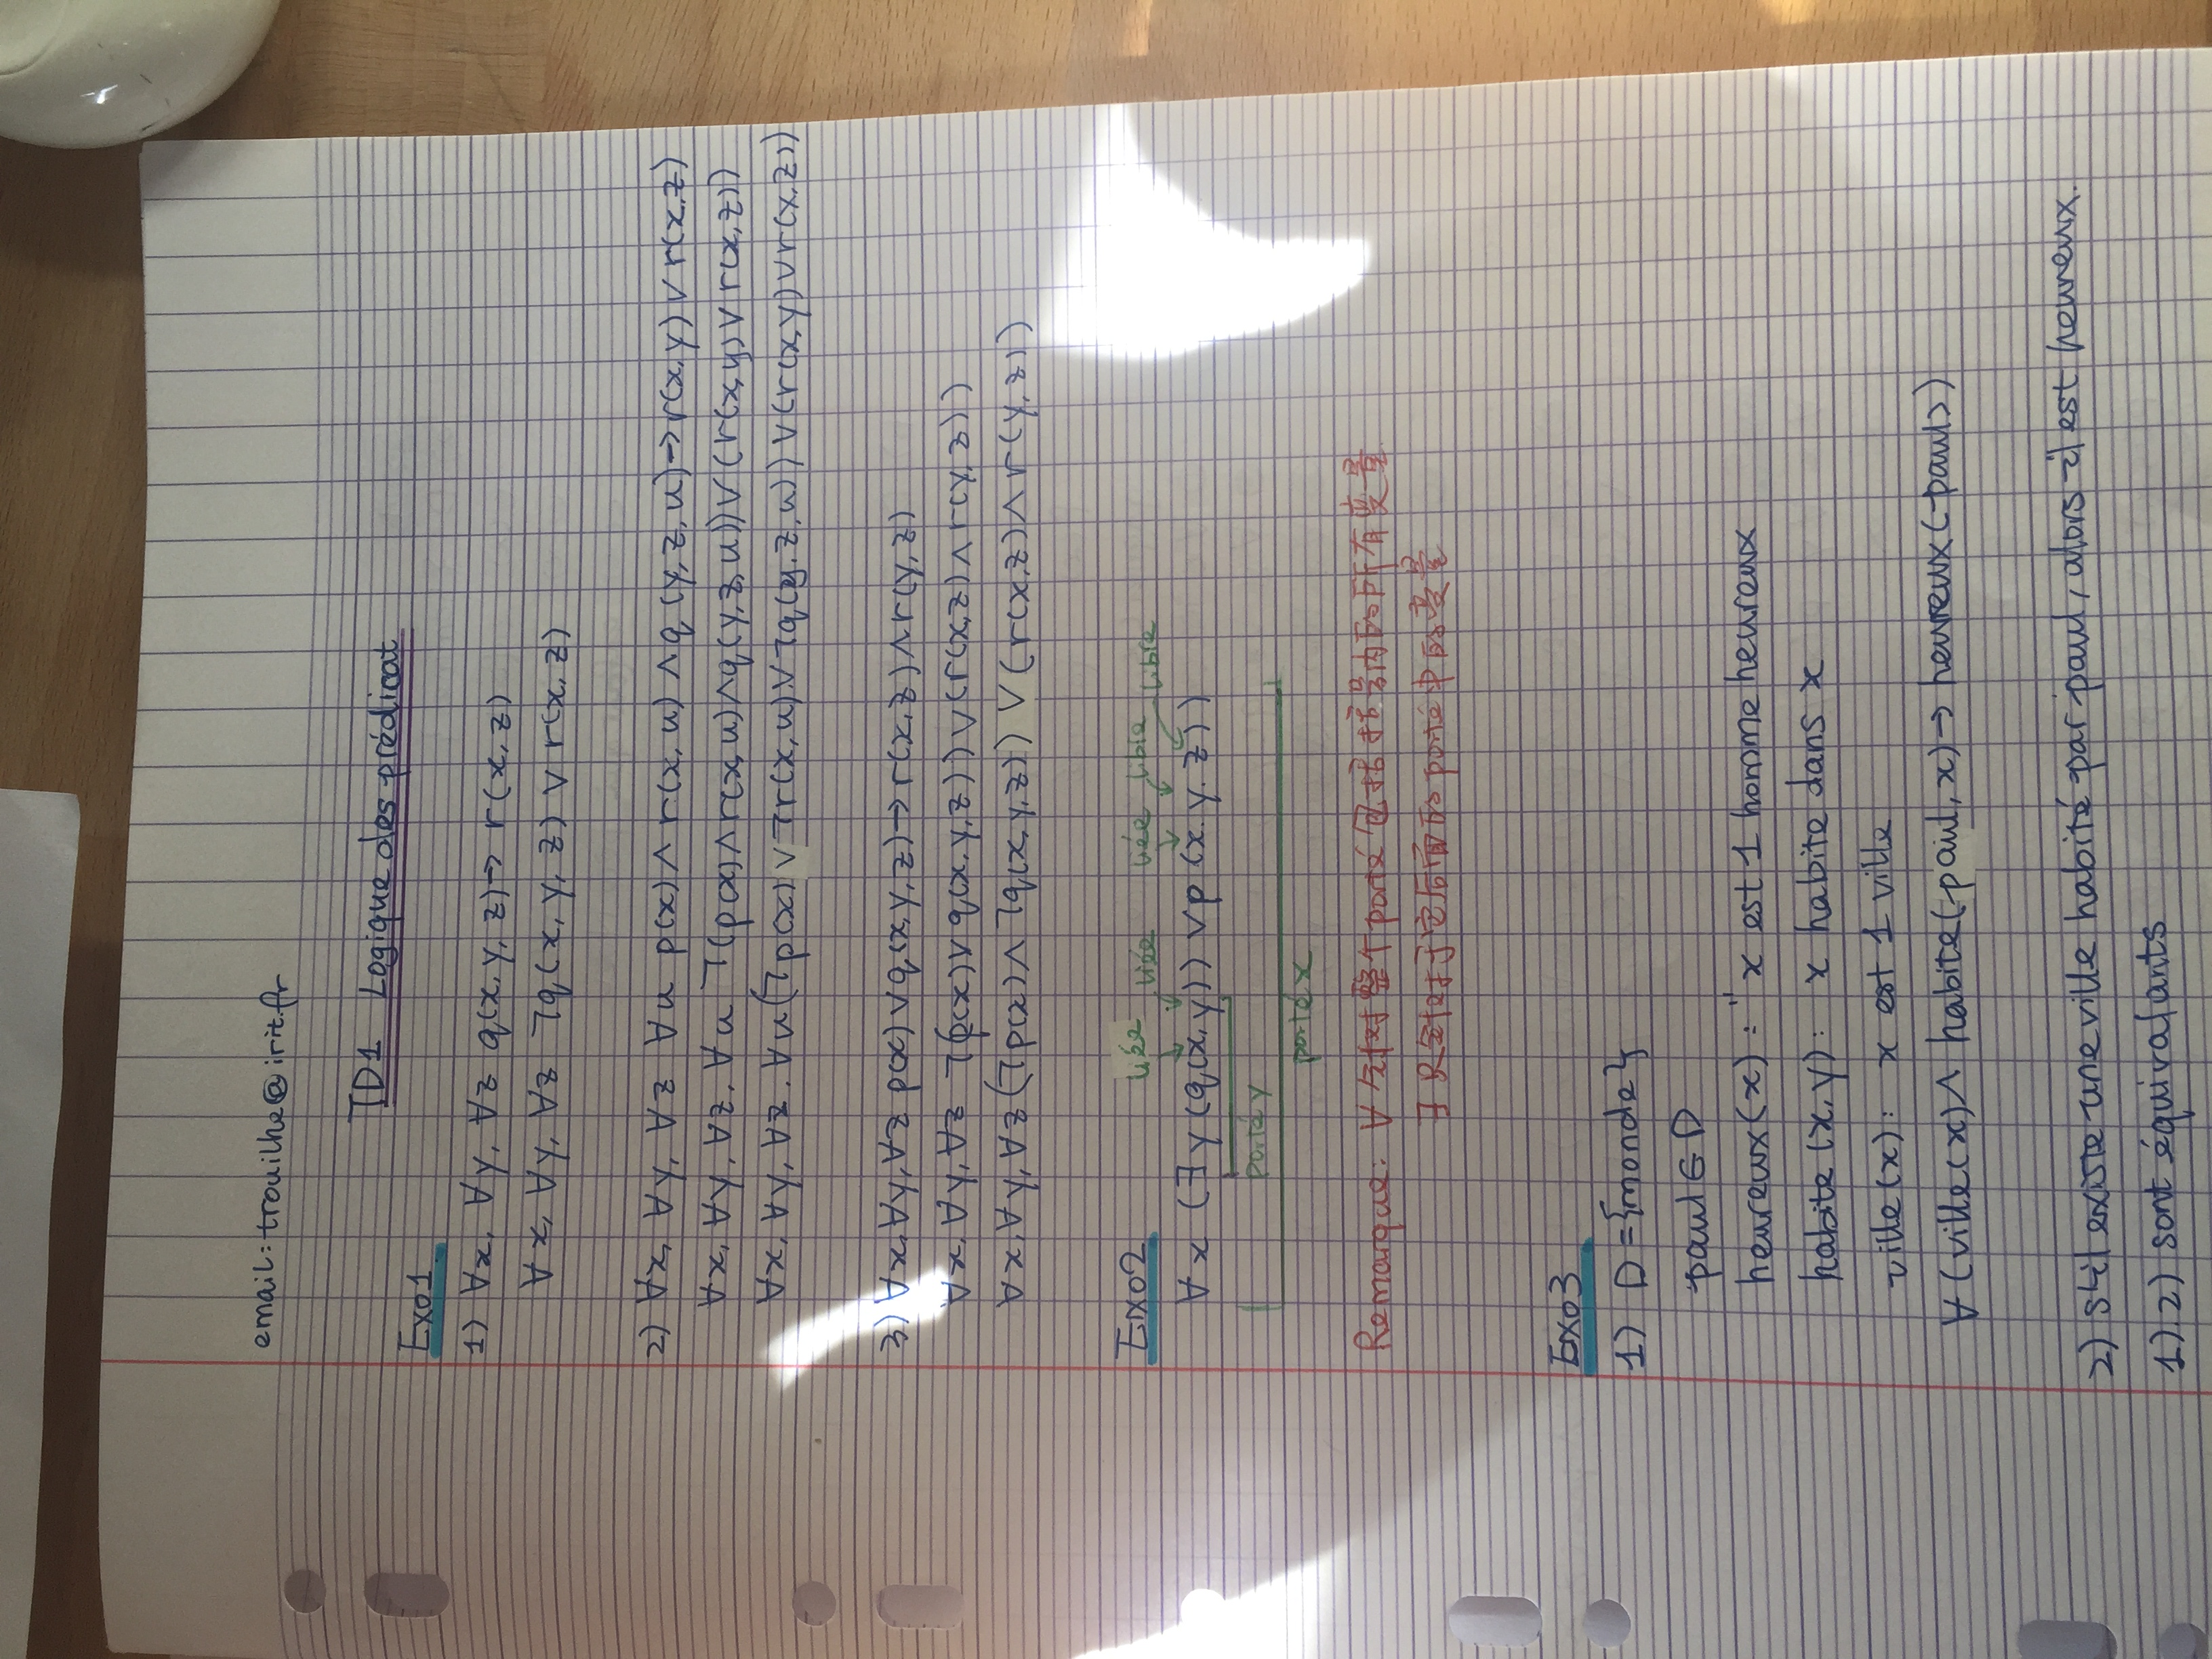 email: trouilhe@irit.fr
TD1 Logique des prédicat
Exo1
1) ∀x, ∀y, ∀z q(x, y, z) → r(x, z)
∀x, ∀y, ∀z ¬q(x, y, z) ∨ r(x, z)
2) ∀x, ∀y, ∀z ∀u p(x) ∧ r(x, u) ∧ q(y, z, u) → r(x, y) ∨ r(x, z)
∀x, ∀y, ∀z, ∀u ¬(p(x) ∧ r(x, u) ∧ q(y, z, u)) ∨ (r(x, y) ∨ r(x, z))
∀x, ∀y, ∀z, ∀u (¬p(x) ∨ ¬r(x, u) ∨ ¬q(y, z, u)) ∨ (r(x, y) ∨ r(x, z))
3) ∀x, ∀y, ∀z p(x) ∧ q(x, y, z) → r(x, z) ∧ r(y, z)
∀x, ∀y, ∀z ¬(p(x) ∧ q(x, y, z)) ∨ (r(x, z) ∧ r(y, z))
∀x, ∀y, ∀z (¬p(x) ∨ ¬q(x, y, z)) ∨ (r(x, z) ∧ r(y, z))
Exo2
liée liée liée libre libre
∀x (∃y (q(x, y)) ∧ p(x, y, z))
porté y
porté x
Remarque: ∀ 针对整个 porté 包括括号内的所有变量
∃ 只针对于它后面的 porté 中的变量
Exo3
1) D = {monde}
paul ∈ D
heureux(x) : " x est 1 homme heureux
habite (x, y) : x habite dans x
ville(x) : x est 1 ville
∀ (ville(x) ∧ habite(paul, x) → heureux(paul))
2) s'il existe une ville habité par paul, alors il est heureux.
1) 2) sont équivalants